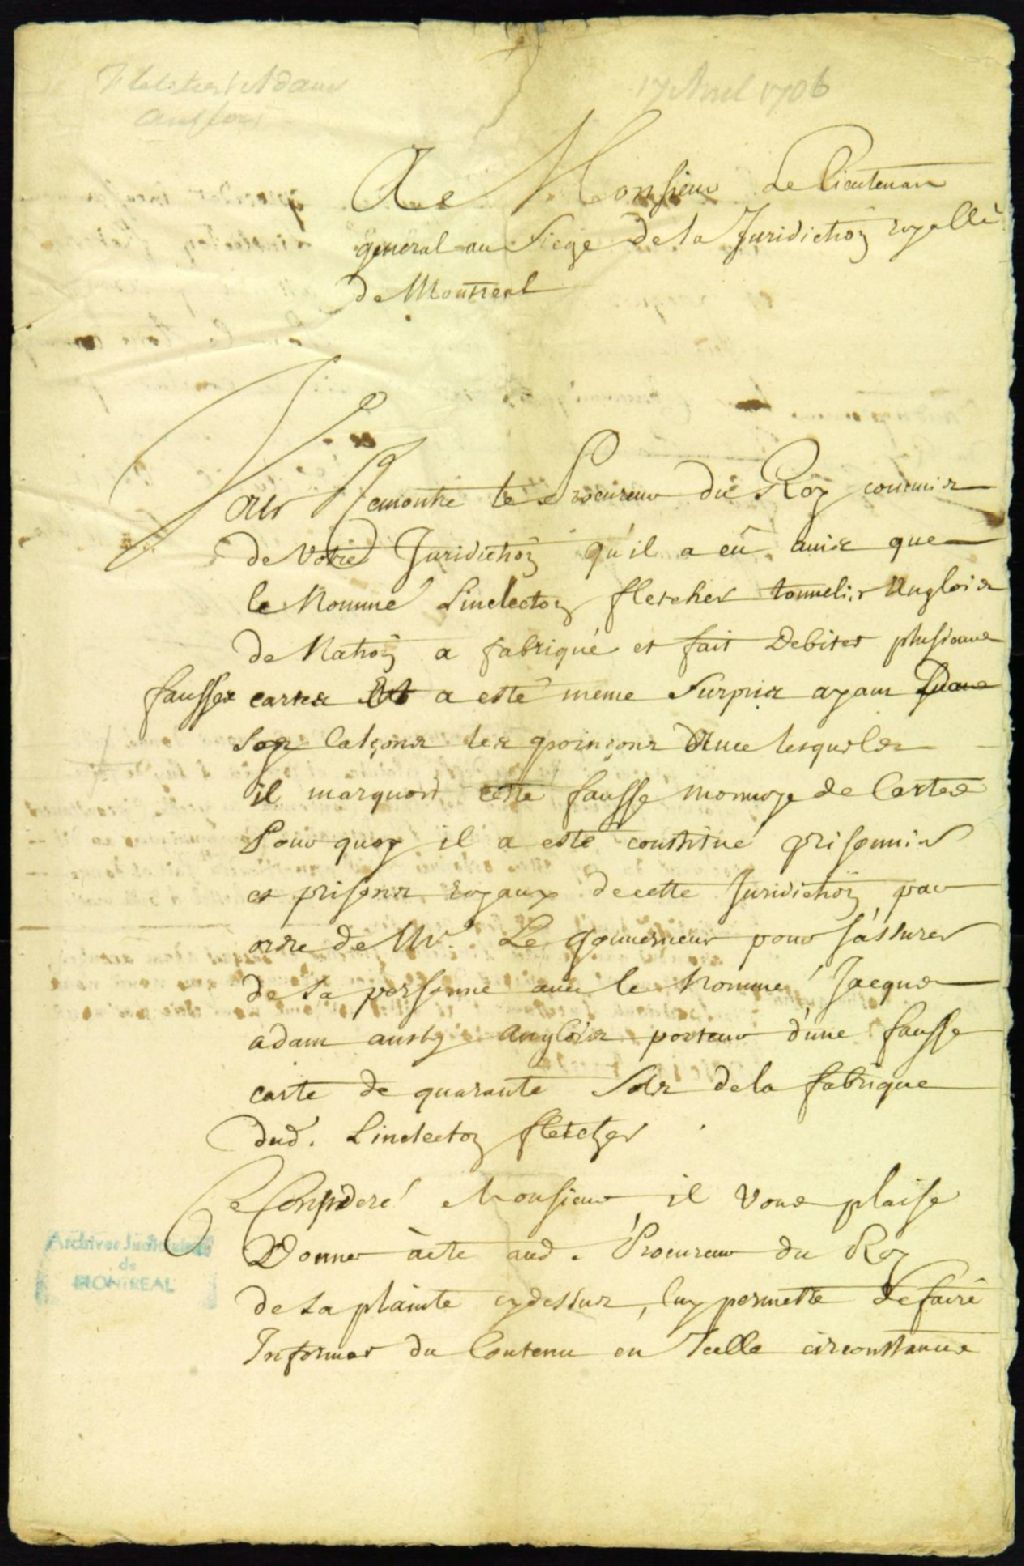 17 Avril 1706
A Monsieur Le Lieutenant
general au siege de la Juridiction royalle
de Montreal
Vous Remontre le Procureur du Roy commis
de votre Juridiction qu'il a eû auis que
le nommé Lindecton fletcher tonnelier Anglois
de Nation a fabriqué et fait debiter plusieurs
fausses cartes a esté meme surpris ayant dans
ses calçons les poinçons Auec lesqueles
il marquoit cette fausse monnoye de Cartes
Pour quoy il a esté constitué prisonnier
es prisons royaux de cette Juridiction par
ordre de Mr. Le gouuerneur pour s'assurer
de sa personne auec le nommé Jacques
adam austy anglois porteur d'une fausse
carte de quarante sols de la fabrique
dud. Lindecton fletcher
Ce Consideré Monsieur il vous plaise
Donner acte aud. Procureur du Roy
de sa plainte cydessus, luy permettre de faire
Informer du Contenu en Icelle circonstances
Archives Judiciaires
de
MONTREAL